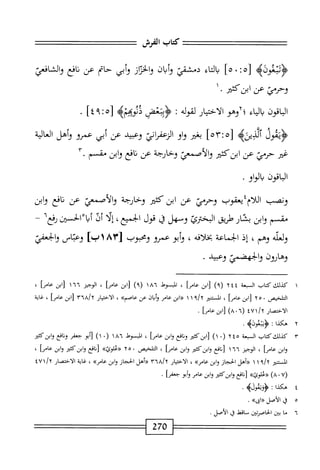 كتاب الفرش
﴿تَبْغُونَ﴾ [٥٠:٥] بالتاء دمشقيّ وأبان والخزّاز وأبي حاتم عن نافع والشافعيّ
وحرميّ عن ابن كثير .١
الباقون بالياء ٢،وهو الاختيار لقوله : ﴿بِبَعْضِ ذُنُوبِهِمْ﴾ [٤٩:٥] .
﴿يَقُولُ ٱلَّذِينَ﴾ [٥٣:٥] بغير واو الزعفرانيّ وعبيد عن أبي عمرو وأهل العالية
غير حرميّ عن ابن كثير والأصمعيّ وخارجة عن نافع وابن مقسم .٣
الباقون بالواو .
ونصب اللام٤يعقوب وحرميّ عن ابن كثير وخارجة والأصمعيّ عن نافع وابن
مقسم وابن بشار طريق البختريّ وسهل في قول الجميع ، إلّا أنّ أبا٥الحسين رفع٦ -
ولعلّه وهم ، إذ الجماعة بخلافه ، وأبو عمرو ومحبوب [١٨٣ب] وعبّاس والجعفيّ
وهارون والجهضميّ وعبيد .
١ كذلك كتاب السبعة ٢٤٤ (٩) [ابن عامر] ، المبسوط ١٨٦ (٩) [ابن عامر] ، الوجيز ١٦٦ [ابن عامر] ،
التلخيص ٢٥٠ [ابن عامر] ، المستنير ١١٩/٢ «ابن عامر وأبان عن عاصم» ، الاختيار ٣٦٨/٢ [ابن عامر] ، غاية
الاختصار ٤٧١/٢ (٨٠٦) [ابن عامر] .
٢ هكذا : ﴿يَبْغُونَ﴾ .
٣ كذلك كتاب السبعة ٢٤٥ (١٠) [ابن كثير ونافع وابن عامر] ، المبسوط ١٨٦ (١٠) [أبو جعفر ونافع وابن كثير
وابن عامر] ، الوجيز ١٦٦ [نافع وابن كثير وابن عامر] ، التلخيص ٢٥٠ «علويّ» [نافع وابن كثير وابن عامر] ،
المستنير ١١٩/٢ «أهل الحجاز وابن عامر» ، الاختيار ٣٦٨/٢ «أهل الحجاز وابن عامر» ، غاية الاختصار ٤٧١/٢
(٨٠٧) «علويّ» [نافع وابن كثير وابن عامر وأبو جعفر] .
٤ هكذا : ﴿وَيَقُولَ﴾ .
٥ في الأصل «ابي» .
٦ ما بين الحاصرتين ساقط في الأصل .
270